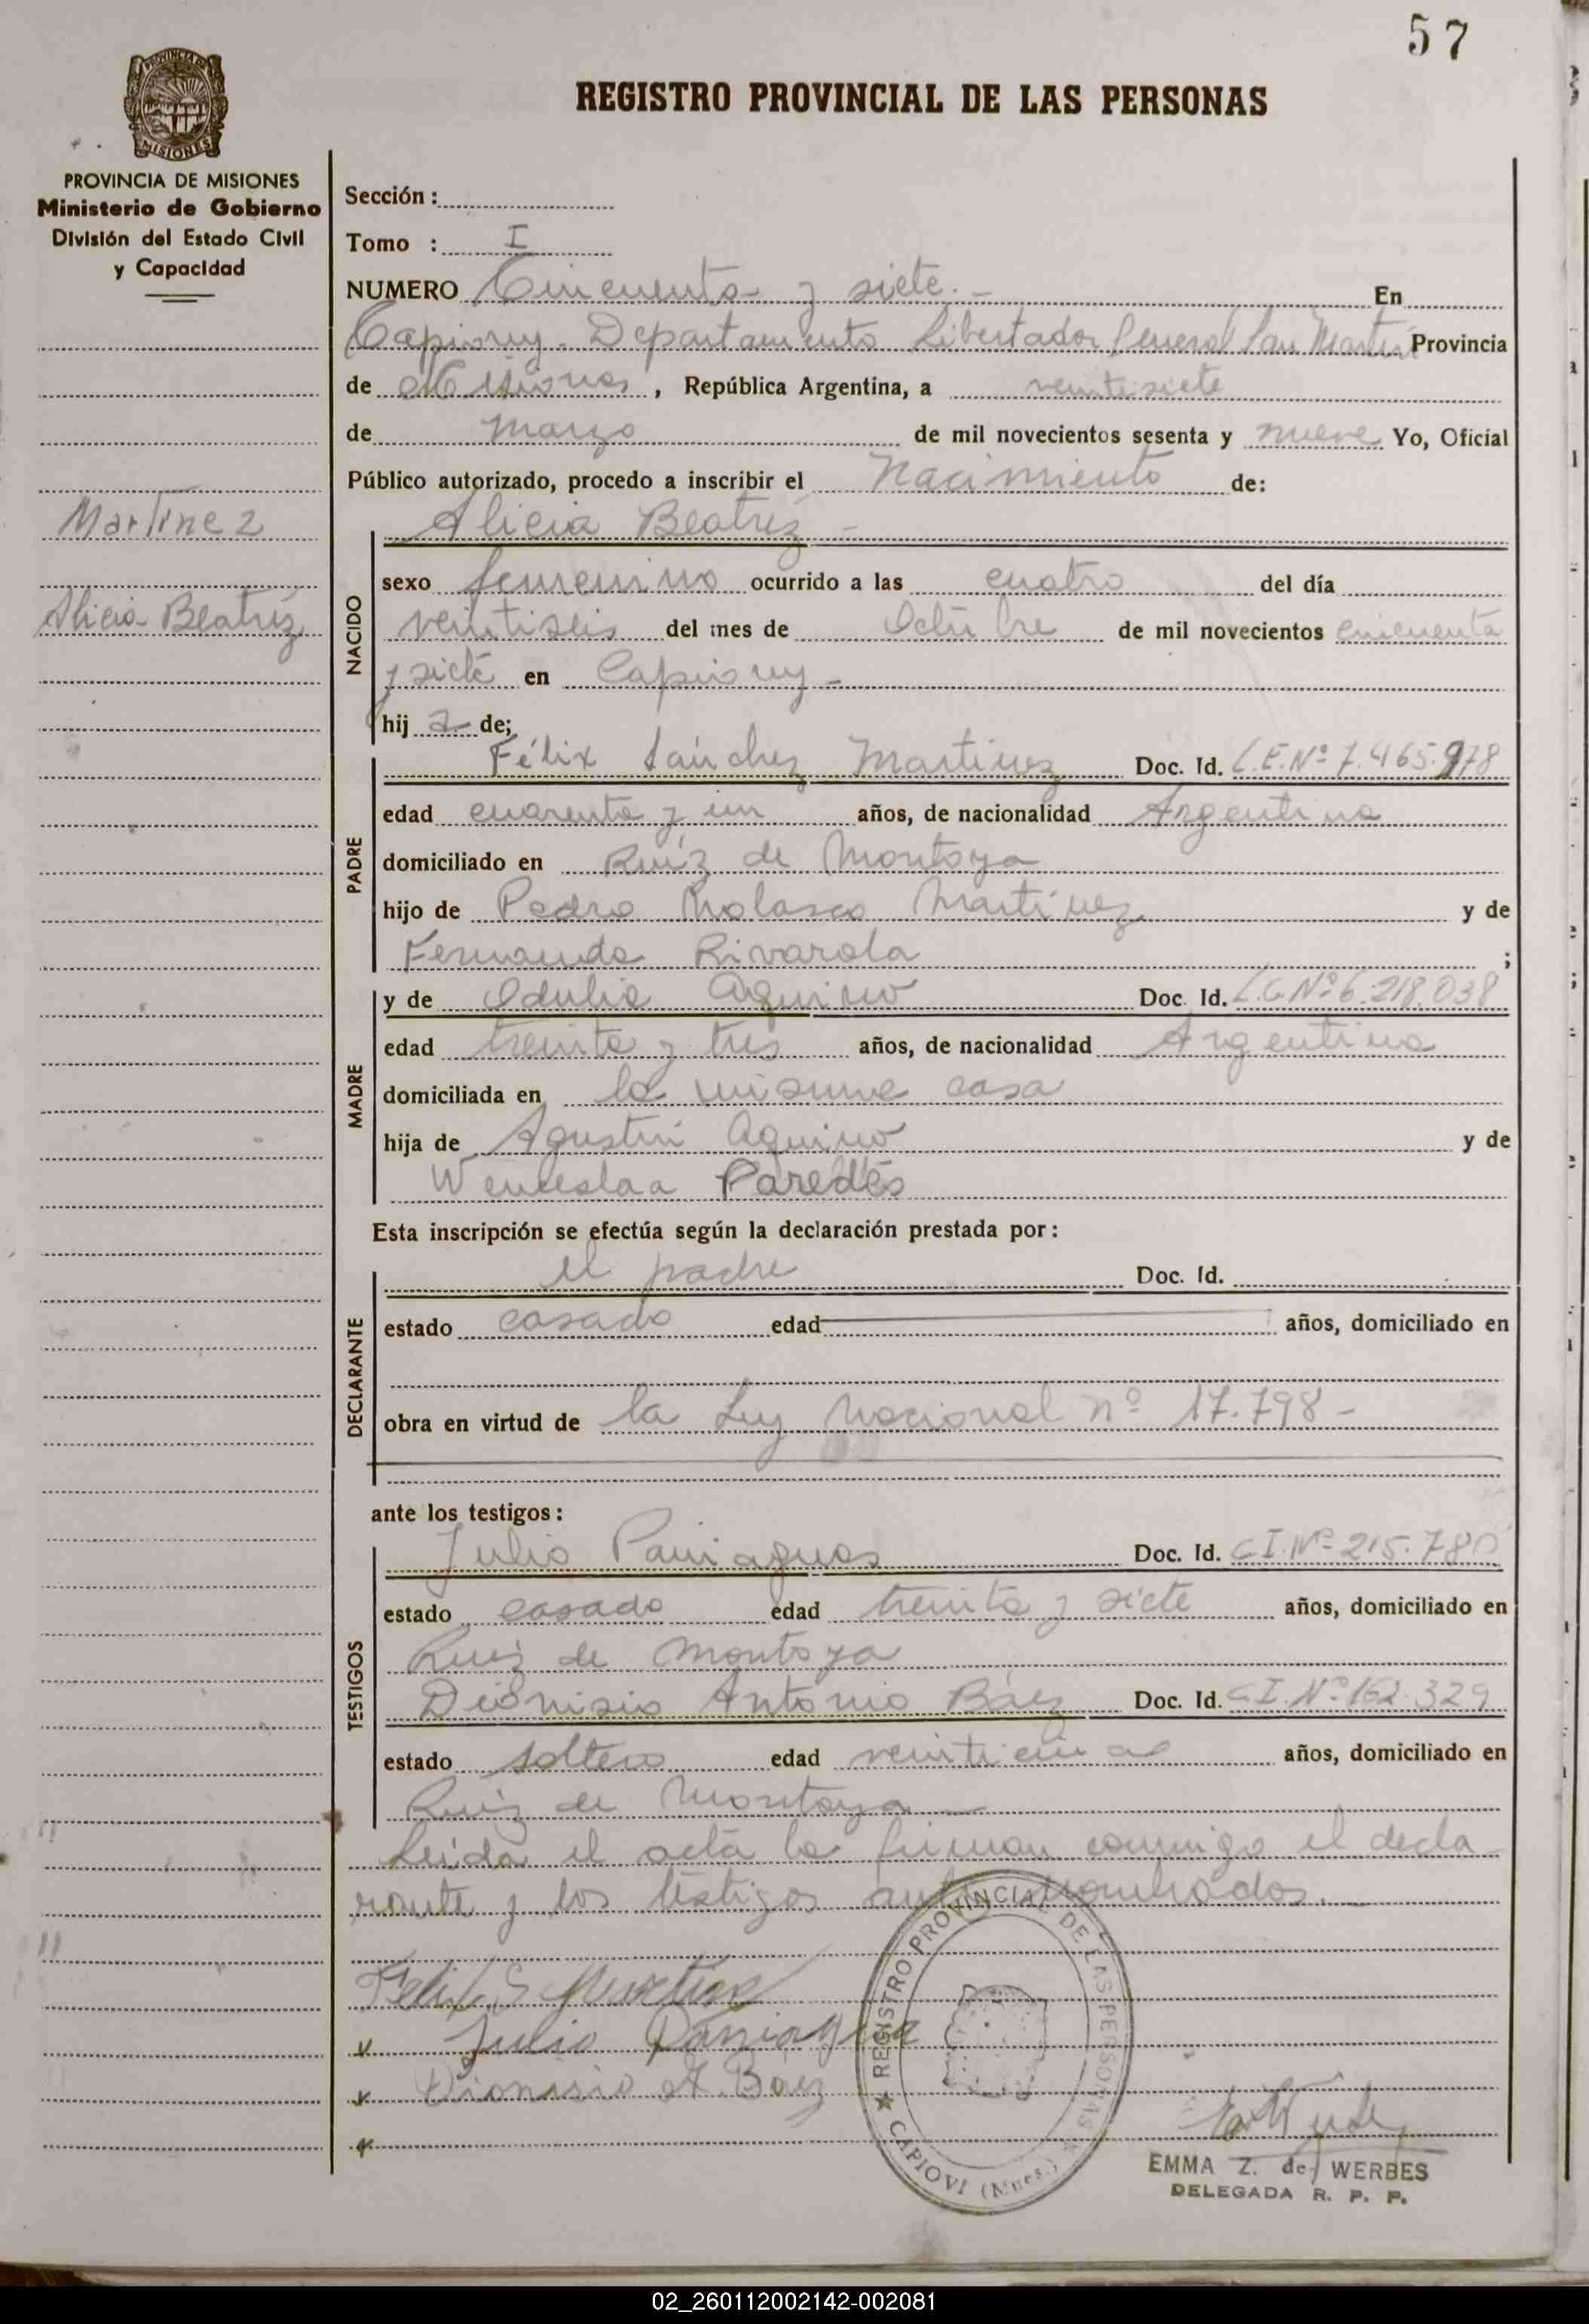 57
REGISTRO PROVINCIAL DE LAS PERSONAS
PROVINCIA DE MISIONES
Ministerio de Gobierno
División del Estado Civil
y Capacidad
Martinez
Alicia Beatríz
Sección :
Tomo : I
NUMERO Cincuenta y siete. - En
Capiovy - Departamento Libertador General San Martín Provincia
de Misiones , República Argentina, a veintisiete
de marzo de mil novecientos sesenta y nueve Yo, Oficial
Público autorizado, procedo a inscribir el Nacimiento de:
Alicia Beatriz -
NACIDO
sexo femenino ocurrido a las cuatro del día
veintiseis del mes de Octubre de mil novecientos cincuenta
y siete en Capiovy -
hij a de;
PADRE
Félix Sánchez Martinez Doc. Id. L.E.Nº 7.465.978
edad cuarenta y un años, de nacionalidad Argentina
domiciliado en Ruíz de Montoya
hijo de Pedro Nolasco Martínez y de
Fernanda Rivarola ;
MADRE
y de Odulia Aquino Doc. Id. L.C.Nº 6.218.038
edad treinta y tres años, de nacionalidad Argentina
domiciliada en la misma casa
hija de Agustín Aquino y de
Wenceslaa Paredes
Esta inscripción se efectúa según la declaración prestada por:
DECLARANTE
el padre Doc. Id.
estado casado edad años, domiciliado en
obra en virtud de la Ley Nacional nº 17.798 -
ante los testigos:
TESTIGOS
Julio Paniagua Doc. Id. C.I.Nº 215.780
estado casado edad treinta y siete años, domiciliado en
Ruiz de Montoya
Dionisio Antonio Báez Doc. Id. C.I.Nº 162.329
estado soltero edad años, domiciliado en
Ruiz de Montoya -
Leída el acta la firman conmigo el decla
rante y los testigos antenombrados. -
Felix S Martinez
Julio Paniagua
Dionisio A. Báez
REGISTRO PROVINCIAL DE LAS PERSONAS
CAPIOVI (Mnes.)
EMMA Z. de WERBES
DELEGADA R. P. P.
02_260112002142-002081